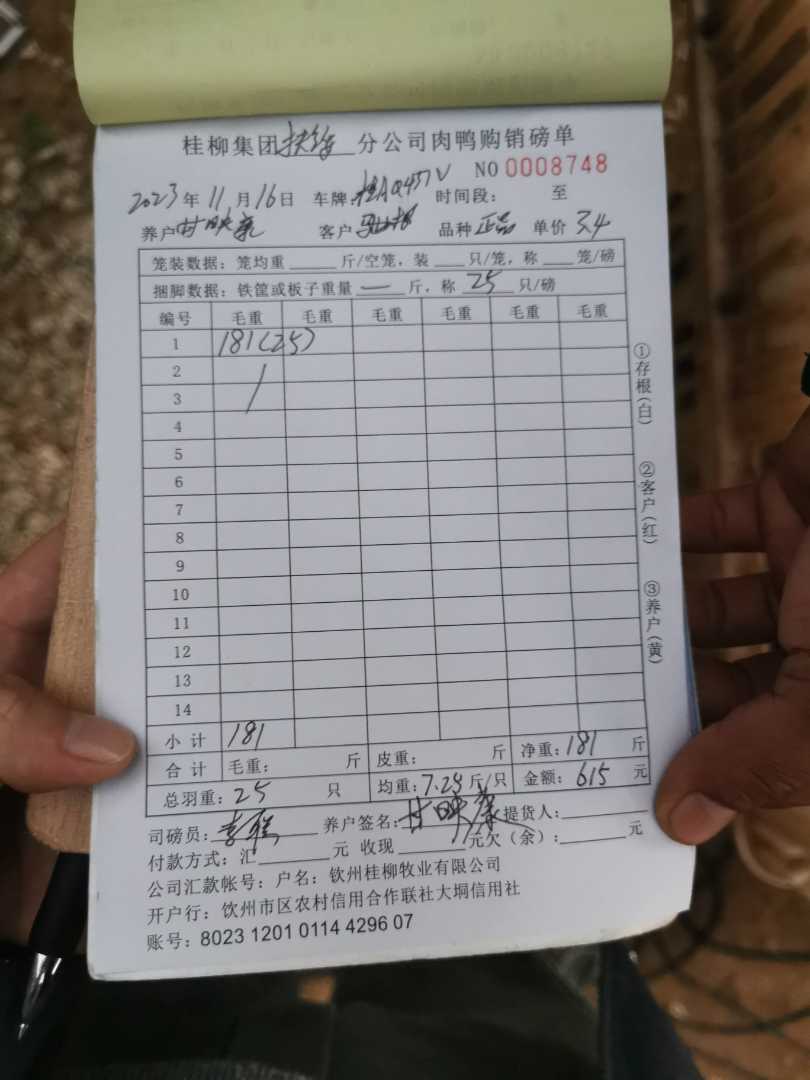 桂柳集团扶绥分公司肉鸭购销磅单
NO 0008748
2023年11月16日 车牌: 时间段: 至
养户甘映 客户 品种 正品 单价 3.4
笼装数据: 笼均重 斤/空笼, 装 只/笼, 称 笼/磅
捆脚数据: 铁筐或板子重量 — 斤, 称 25 只/磅
编号 毛重 毛重 毛重 毛重 毛重 毛重
1 181(25)
2
3
4
5
6
7
8
9
10
11
12
13
14
小计 181
合计 毛重: 斤 皮重: 斤 净重: 181 斤
总羽重: 25 只 均重: 7.24 斤/只 金额: 615 元
司磅员: 李 养户签名: 甘映 提货人:
付款方式: 汇 元 收现 元欠(余): 元
公司汇款帐号: 户名: 钦州桂柳牧业有限公司
开户行: 饮州市区农村信用合作联社大垌信用社
账号: 8023 1201 0114 4296 07
①存根(白)
②客户(红)
③养户(黄)